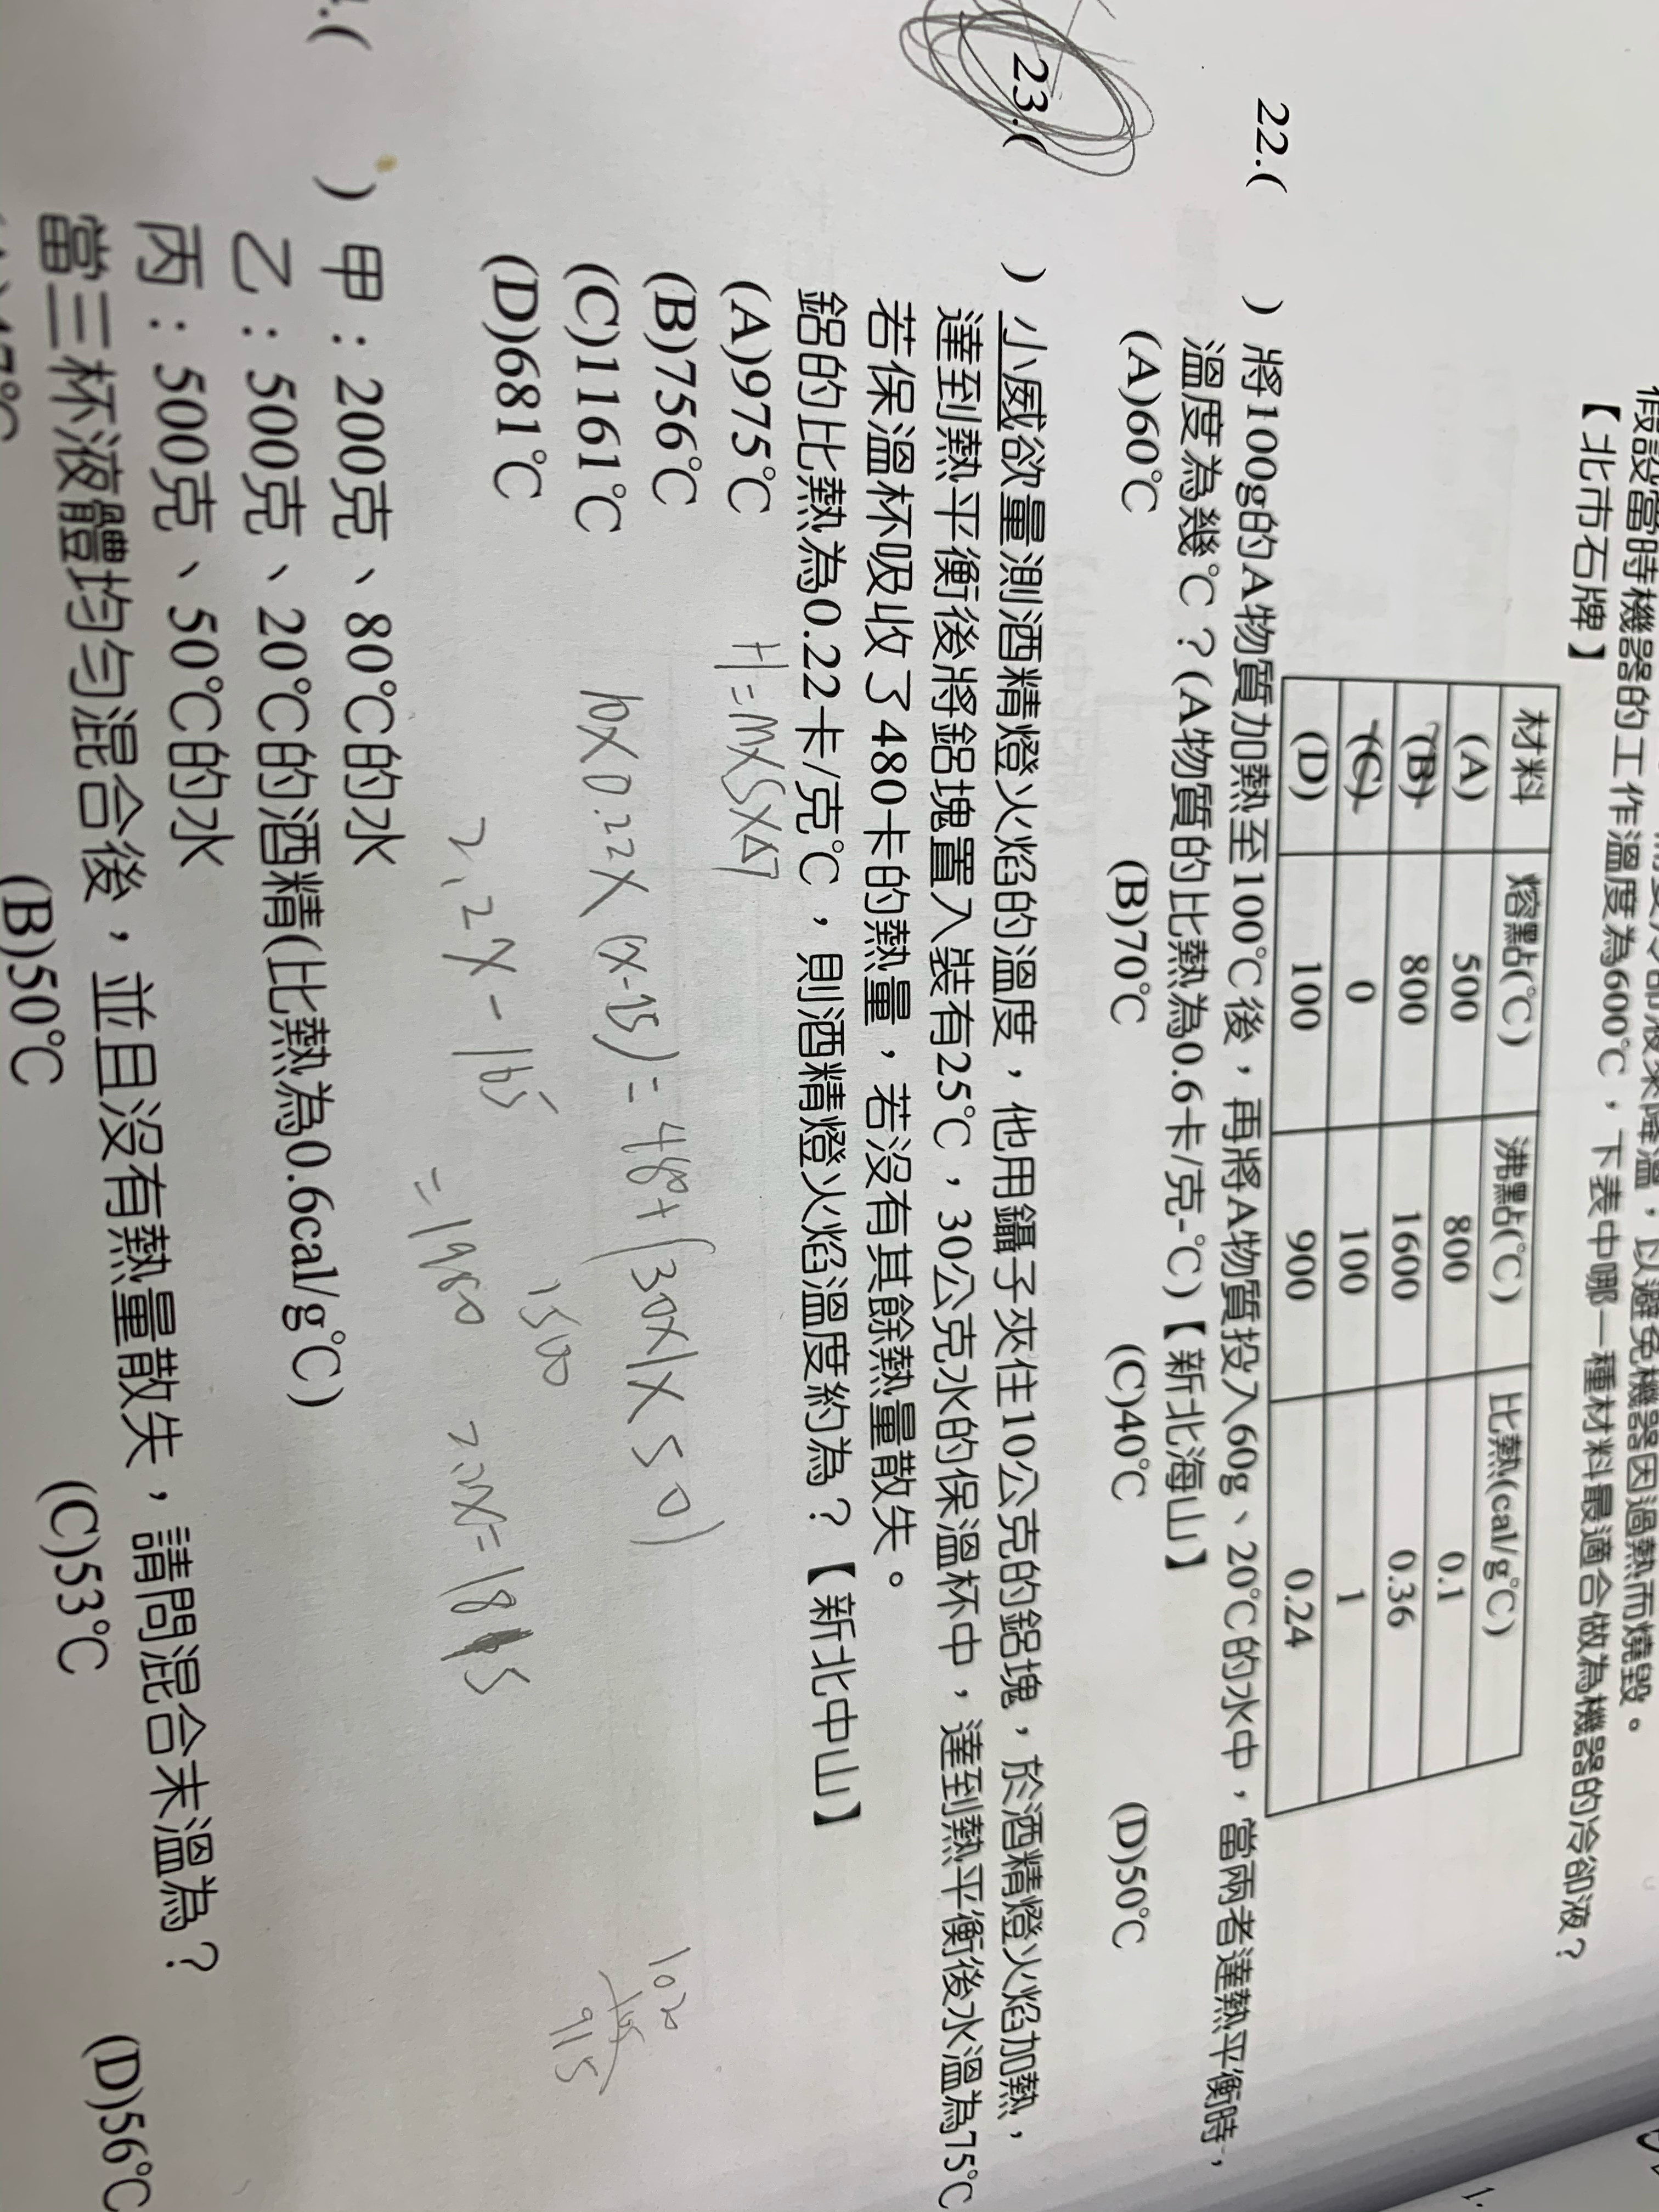 假設當時機器的工作溫度為600℃，下表中哪一種材料最適合做為機器的冷卻液？
【北市石牌】
材料 熔點(℃) 沸點(℃) 比熱(cal/g℃)
(A) 500 800 0.1
(B) 800 1600 0.36
(C) 0 100 1
(D) 100 900 0.24
22.( ) 將100g的A物質加熱至100℃後，再將A物質投入60g、20℃的水中，當兩者達熱平衡時，
溫度為幾℃？(A物質的比熱為0.6卡/克-℃)【新北海山】
(A)60℃ (B)70℃ (C)40℃ (D)50℃
23.( ) 小威欲量測酒精燈火焰的溫度，他用鑷子夾住10公克的鋁塊，於酒精燈火焰加熱，
達到熱平衡後將鋁塊置入裝有25℃，30公克水的保溫杯中，達到熱平衡後水溫為75℃
若保溫杯吸收了480卡的熱量，若沒有其餘熱量散失。
鋁的比熱為0.22卡/克℃，則酒精燈火焰溫度約為？【新北中山】
(A)975℃
H=M×S×ΔT
(B)756℃
(C)1161℃
10×0.22×(x-75)=480+(30×1×50)
(D)681℃
1500
2.2x-165
=1980
2.2x=1815
1020
915
.( ) 甲：200克、80℃的水
乙：500克、20℃的酒精(比熱為0.6cal/g℃)
丙：500克、50℃的水
當三杯液體均勻混合後，並且沒有熱量散失，請問混合末溫為？
(B)50℃ (C)53℃ (D)56℃
1.